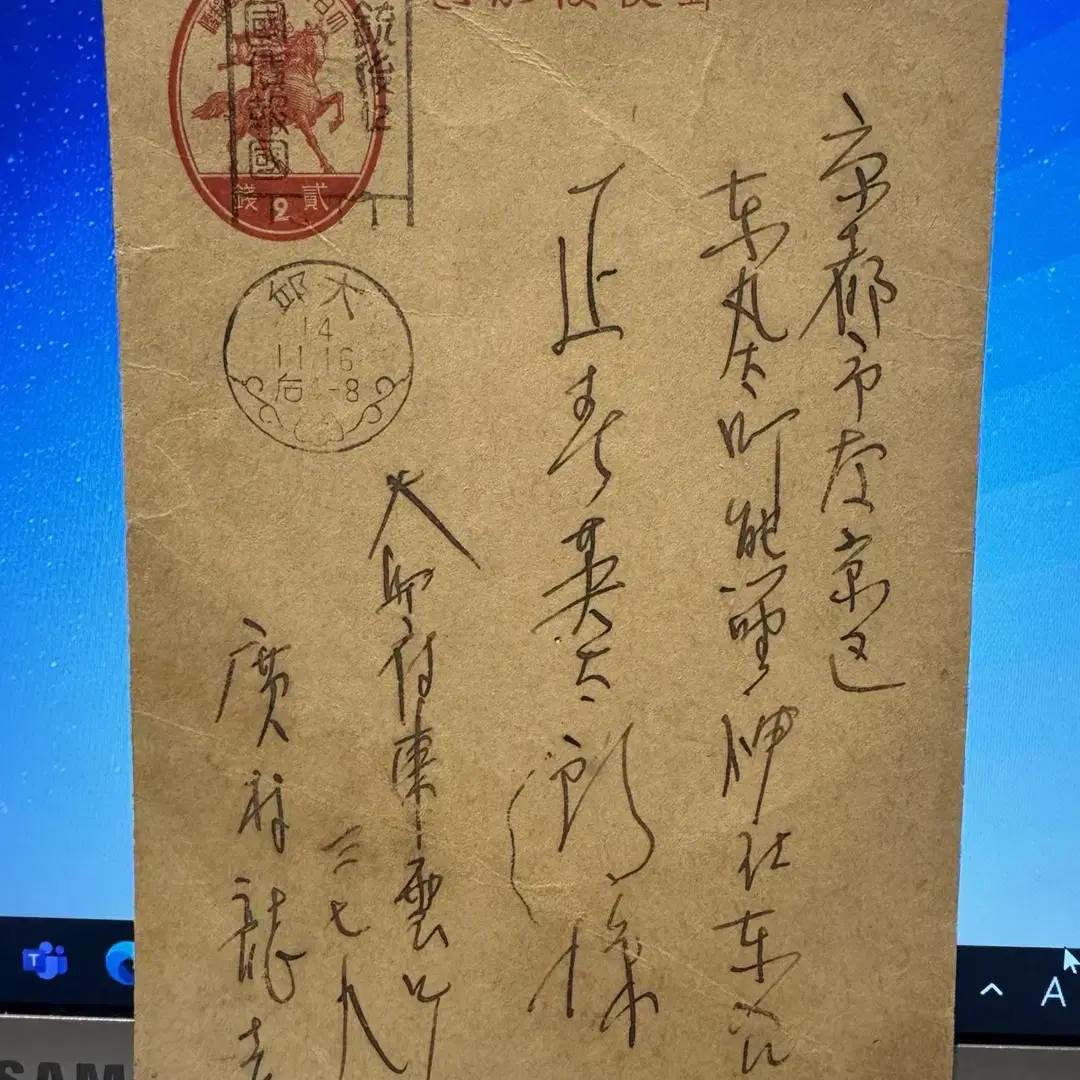 銃後に
國債報國
貳
2
錢
大邱
14
11.16
后4-8
京都市左京区
东丸太町熊野神社东入
正春英太郎様
大邱府東雲町
三七九
廣村龍
SAM
A